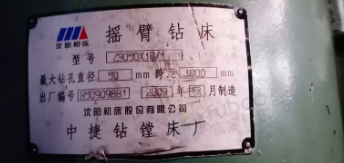 沈阳机床
摇臂钻床
型号 Z3050X16/1
最大钻孔直径 50 mm 跨距 1600 mm
出厂编号 B50909881 2009年 月制造
沈阳机床股份有限公司
中捷钻镗床厂